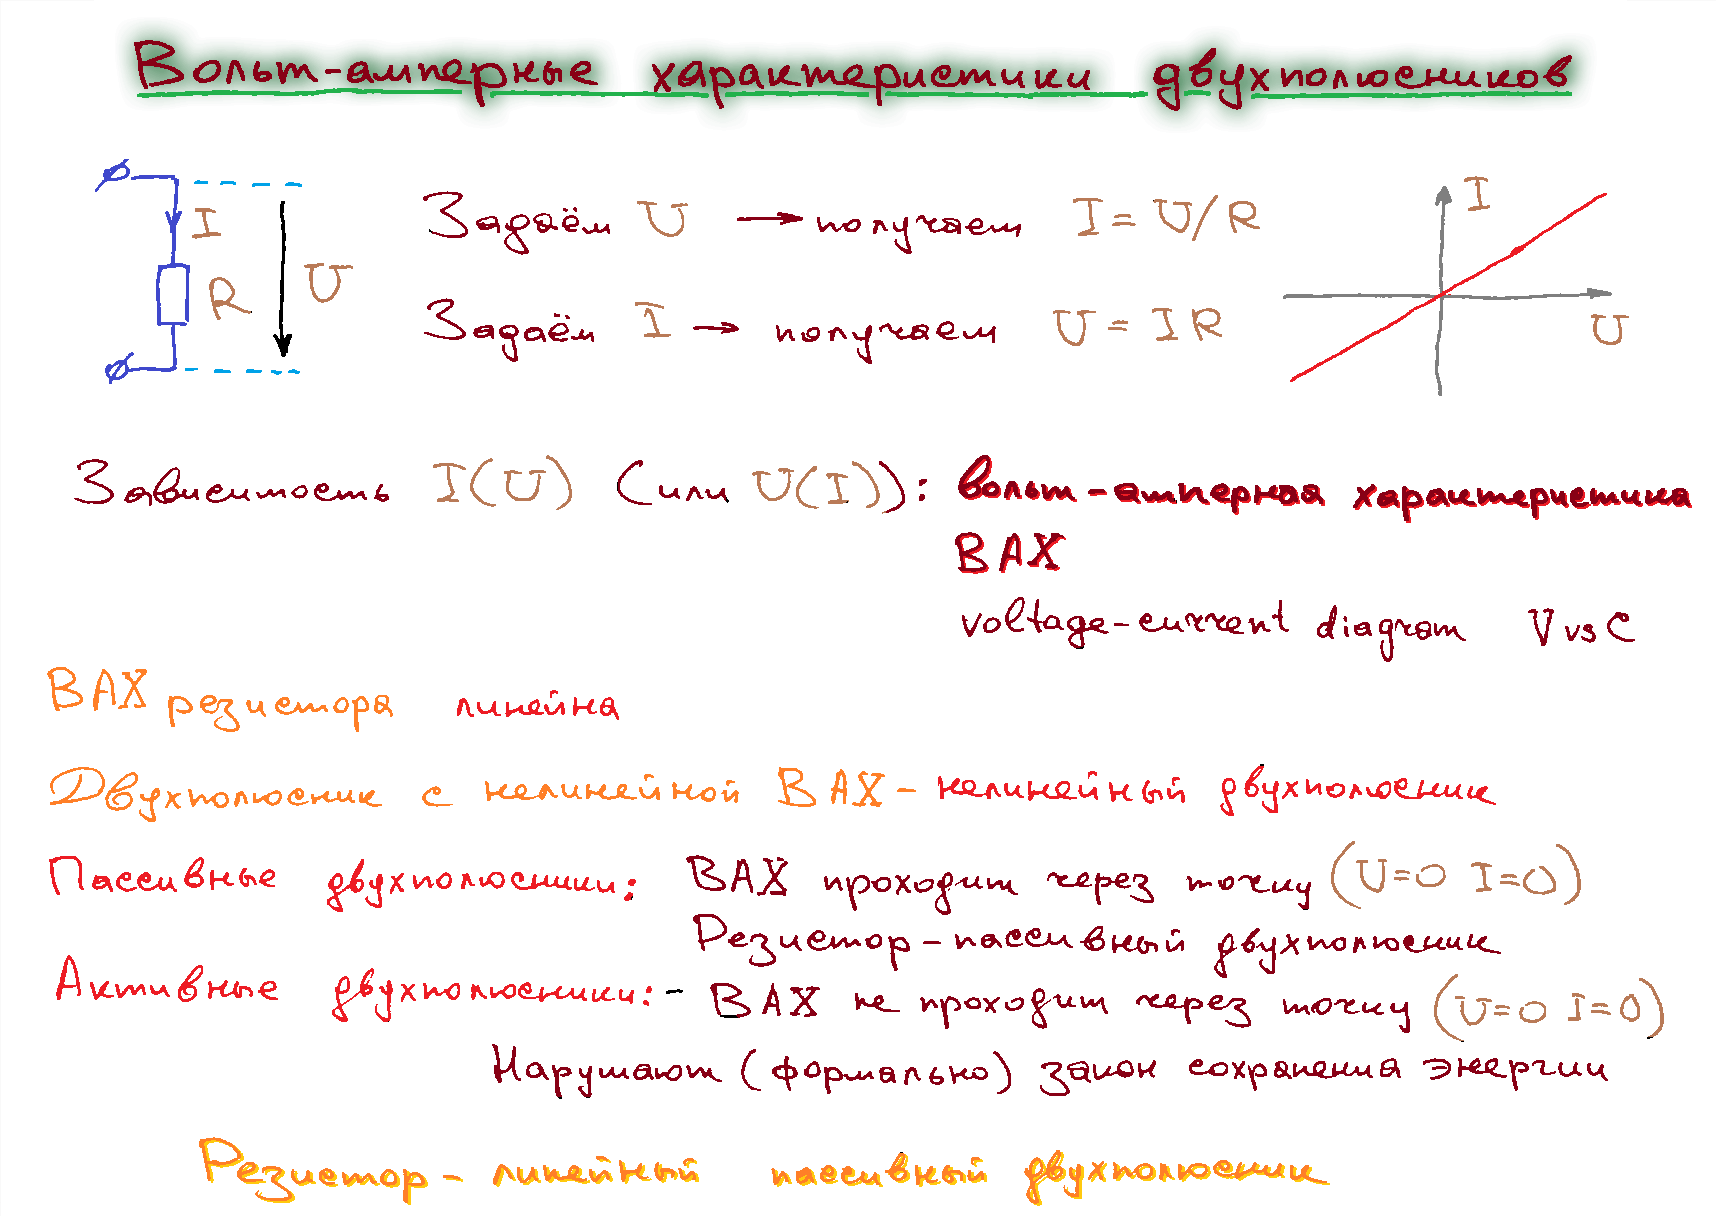 Вольт-амперные характеристики двухполюсников
I
R
U
Задаём U → получаем I = U/R
Задаём I → получаем U = IR
I
U
Зависимость I(U) (или U(I)): вольт-амперная характеристика
ВАХ
voltage-current diagram VvsC
ВАХ резистора линейна
Двухполюсник с нелинейной ВАХ - нелинейный двухполюсник
Пассивные двухполюсники: ВАХ проходит через точку (U=0 I=0)
Резистор - пассивный двухполюсник
Активные двухполюсники: - ВАХ не проходит через точку (U=0 I=0)
Нарушают (формально) закон сохранения энергии
Резистор - линейный пассивный двухполюсник